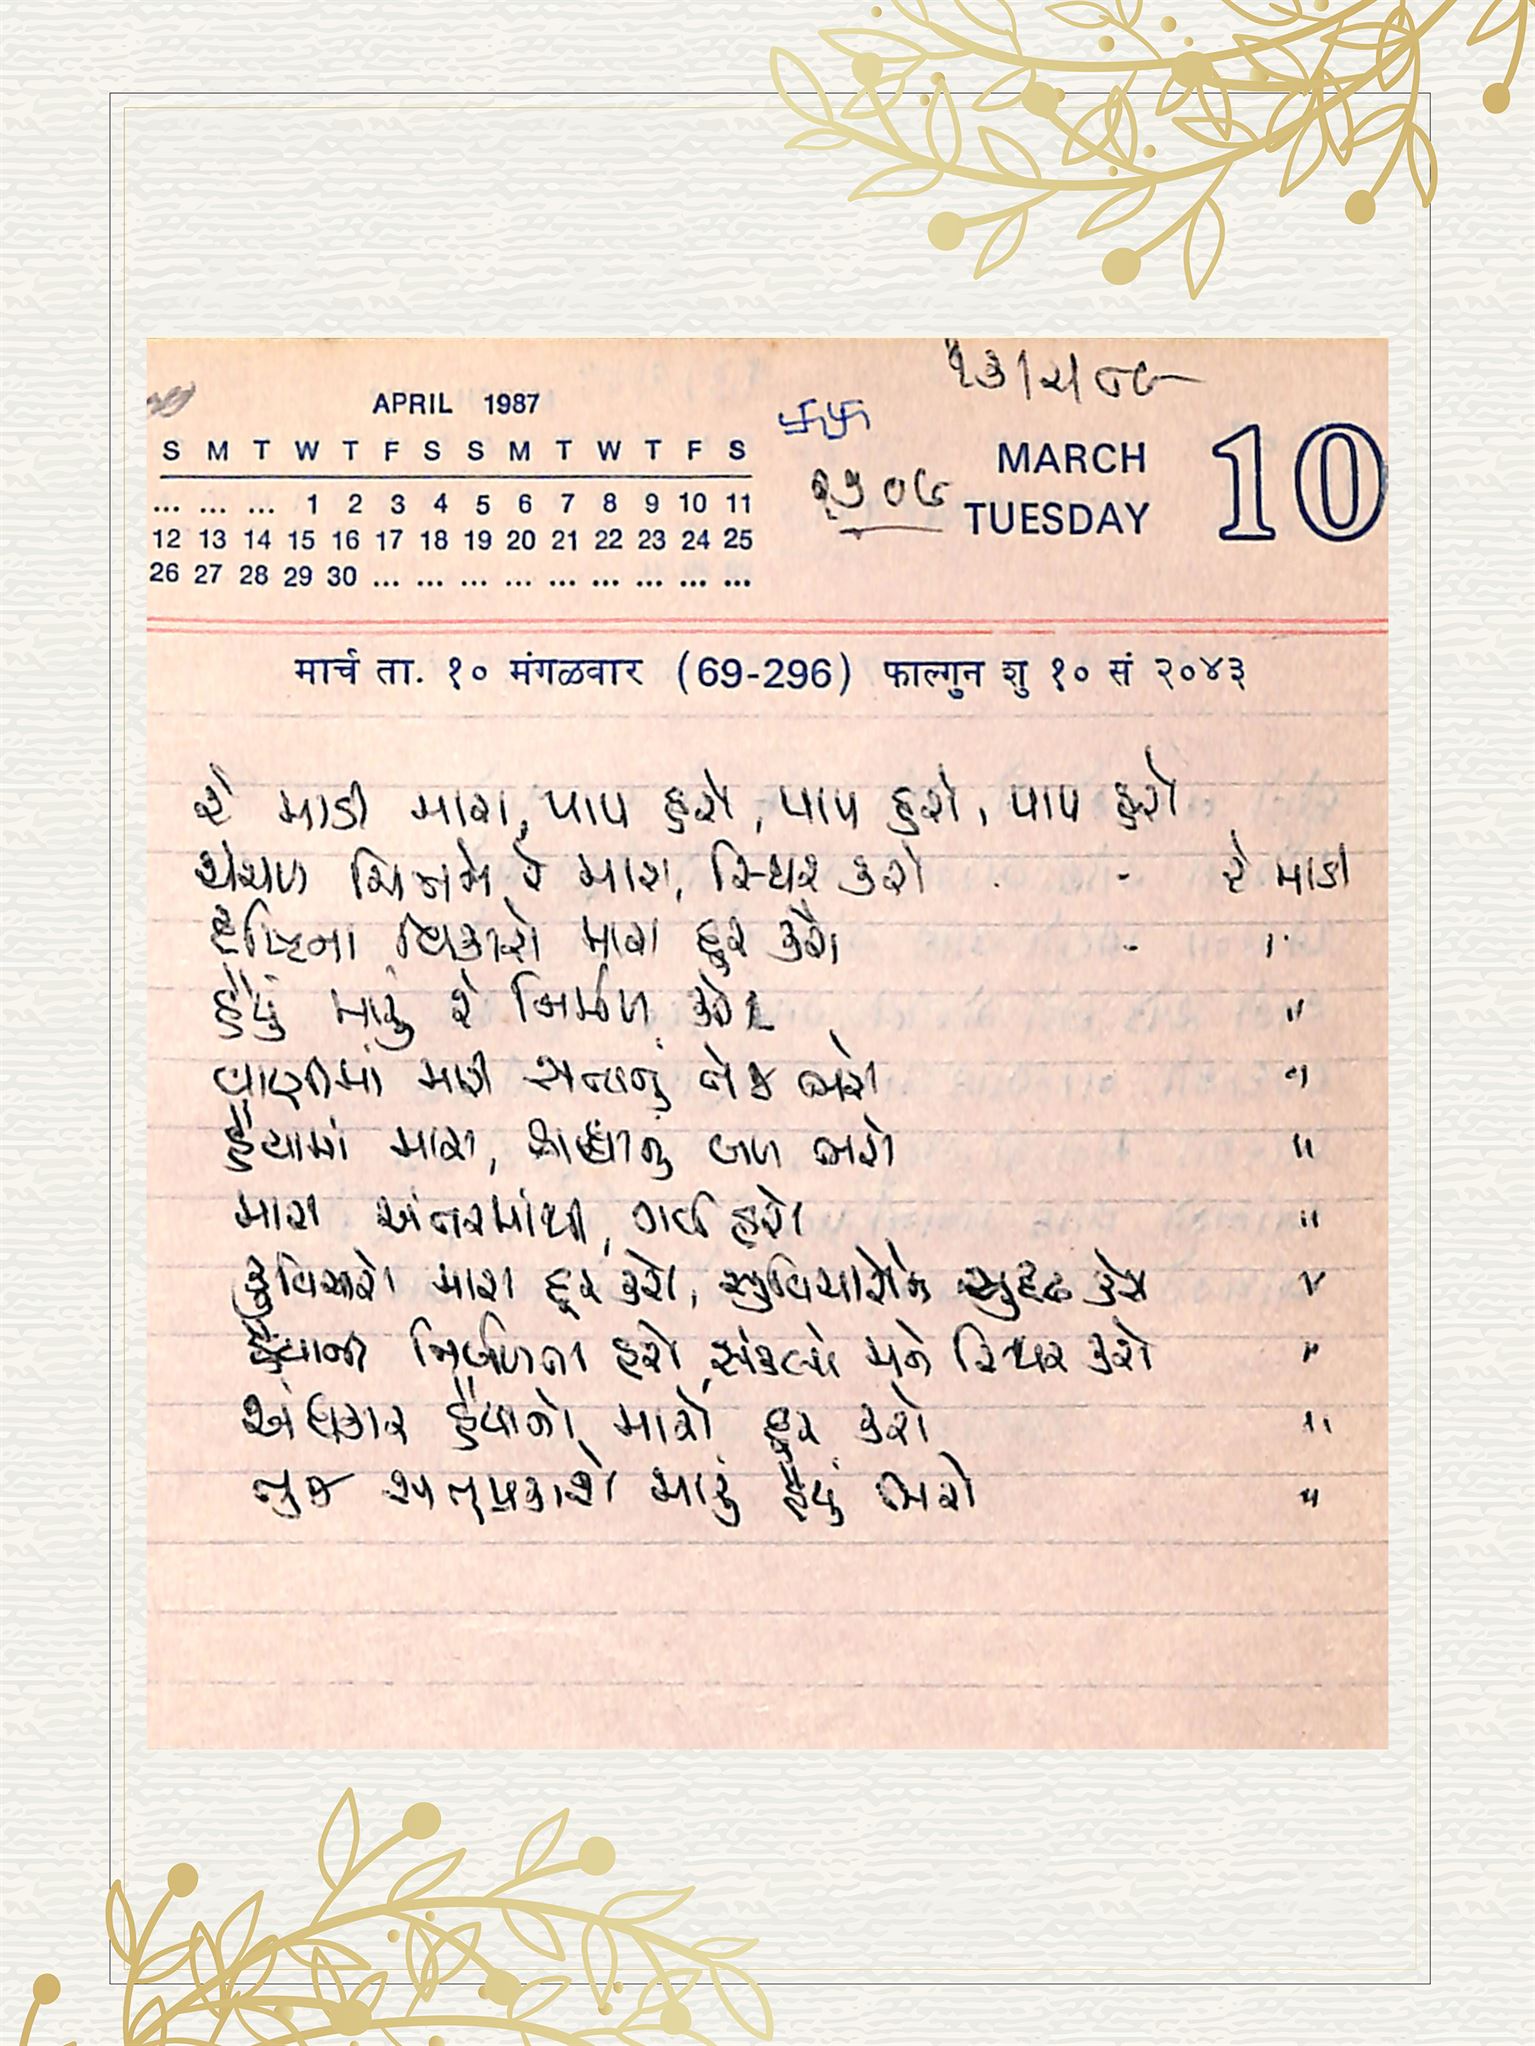 ૨૩/૨/૮૯
APRIL 1987
S M T W T F S S M T W T F S
... ... ... 1 2 3 4 5 6 7 8 9 10 11
12 13 14 15 16 17 18 19 20 21 22 23 24 25
26 27 28 29 30 ... ... ... ... ... ... ... ... ...
卐卐
MARCH
TUESDAY
10
मार्च ता. १० मंगळवार (69-296) फाल्गुन शु १० सं २०४३
રે માડી મારા, પાપ હરો, પાપ હરો, પાપ હરો
ચંચળ ચિત્તને રે મારા, સ્થિર કરો - રે માડી
દૃષ્ટિના વિકારો મારા દૂર કરો - "
હૈયું મારું રે નિર્મળ કરો "
વાણીમાં મારી સત્યનું તેજ ભરો "
હૈયામાં મારા, શ્રદ્ધાનું બળ ભરો "
મારા અંતરમાંથી, ગર્વ હરો "
કુવિચારો મારા દૂર કરો, સુવિચારોને સુદૃઢ કરો "
હૈયાની નિર્બળતા હરો, સંકલ્પો મને સ્થિર કરો "
અંધકાર હૈયાનો, મારો દૂર કરો "
તુજ સત્પ્રકાશે મારું હૈયું ભરો "